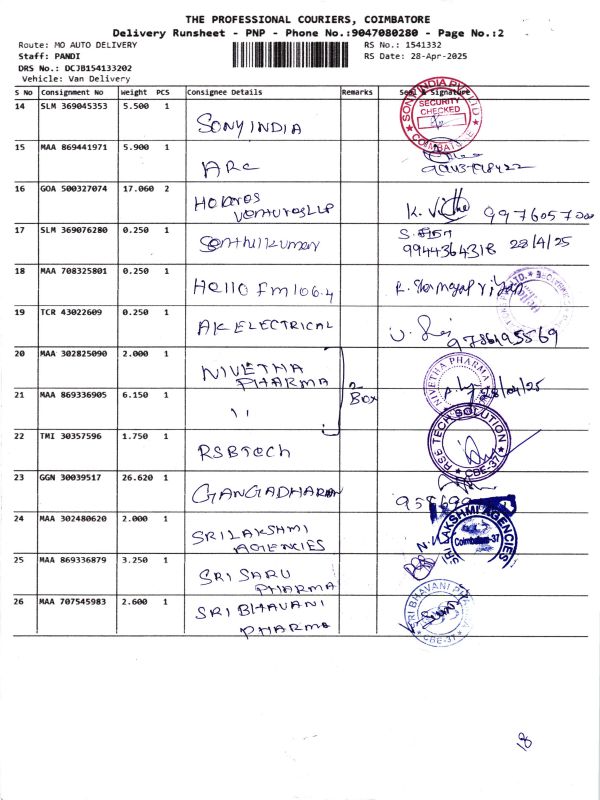 THE PROFESSIONAL COURIERS, COIMBATORE
Delivery Runsheet - PNP - Phone No.:9047080280 - Page No.:2
Route: MO AUTO DELIVERY
Staff: PANDI
DRS No.: DCJB154133202
Vehicle: Van Delivery
RS No.: 1541332
RS Date: 28-Apr-2025
S No Consignment No Weight PCS Consignee Details Remarks Seal & Signature
14 SLM 369045353 5.500 1 SONY INDIA SONY INDIA PVT LTD SECURITY CHECKED COIMBATORE
15 MAA 869441971 5.900 1 ARC
16 GOA 500327074 17.060 2 VENTUROS LLP K.
17 SLM 369076280 0.250 1 Senthilkumar 9944364318 28/4/25
18 MAA 708325801 0.250 1 Hello Fm 106.4
19 TCR 43022609 0.250 1 AK ELECTRICAL 9786195569
20 MAA 302825090 2.000 1 NIVETHA PHARMA 2 Box NIVETHA PHARMA 28/04/25
21 MAA 869336905 6.150 1 ,,
22 TMI 30357596 1.750 1 RSB Tech TECH SOLUTION CBE-37
23 GGN 30039517 26.620 1 GANGADHARAN
24 MAA 302480620 2.000 1 SRI LAKSHMI AGENCIES SRI LAKSHMI AGENCIES Coimbatore-37
25 MAA 869336879 3.250 1 SRI SARU PHARMA
26 MAA 707545983 2.600 1 SRI BHAVANI PHARMA SRI BHAVANI PHARMA CBE-37
18